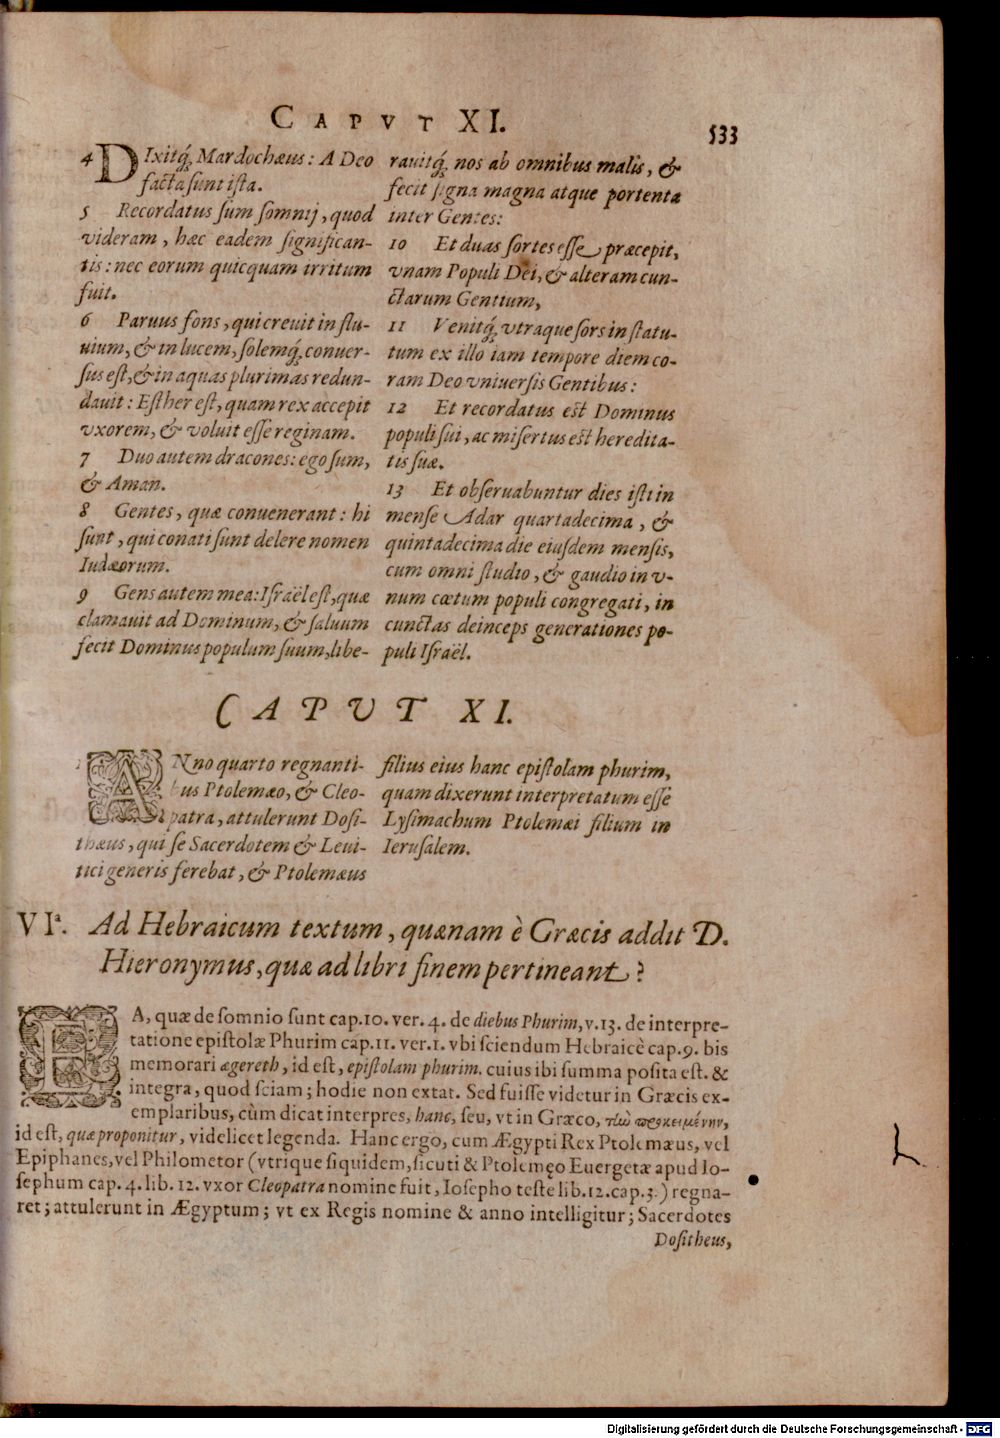 CAPVT XI.
533
4 DIxitq́; Mardochæus: A Deo
facta sunt ista.
5 Recordatus sum somnij, quod
videram, hæc eadem significan-
tis: nec eorum quicquam irritum
fuit.
6 Paruus fons, qui creuit in flu-
uium, & in lucem, solemq́; conuer-
sus est, & in aquas plurimas redun-
dauit: Esther est, quam rex accepit
vxorem, & voluit esse reginam.
7 Duo autem dracones: ego sum,
& Aman.
8 Gentes, quæ conuenerant: hi
sunt, qui conati sunt delere nomen
Iudæorum.
9 Gens autem mea: Israël est, quæ
clamauit ad Dominum, & saluum
fecit Dominus populum suum, libe-
rauitq́; nos ab omnibus malis, &
fecit signa magna atque portenta
inter Gentes:
10 Et duas sortes esse præcepit,
vnam Populi Dei, & alteram cun-
ctarum Gentium,
11 Venitq́; vtraque sors in statu-
tum ex illo iam tempore diem co-
ram Deo vniuersis Gentibus:
12 Et recordatus est Dominus
populi sui, ac misertus est heredita-
tis suæ.
13 Et obseruabuntur dies isti in
mense Adar quartadecima, &
quintadecima die eiusdem mensis,
cum omni studio, & gaudio in v-
num cœtum populi congregati, in
cunctas deinceps generationes po-
puli Israël.
CAPVT XI.
1 ANno quarto regnanti-
bus Ptolemæo, & Cleo-
patra, attulerunt Dosi-
thæus, qui se Sacerdotem & Leui-
tici generis ferebat, & Ptolemæus
filius eius hanc epistolam phurim,
quam dixerunt interpretatum esse
Lysimachum Ptolemæi filium in
Ierusalem.
VIª. Ad Hebraicum textum, quænam è Græcis addit D.
Hieronymus, quæ ad libri finem pertineant?
EA, quæ de somnio sunt cap.10. ver. 4. de diebus Phurim, v.13. de interpre-
tatione epistolæ Phurim cap.11. ver.1. vbi sciendum Hebraicè cap.9. bis
memorari ægereth, id est, epistolam phurim. cuius ibi summa posita est. &
integra, quod sciam; hodie non extat. Sed fuisse videtur in Græcis ex-
emplaribus, cùm dicat interpres, hanc, seu, vt in Græco, τὴν προκειμένην,
id est, quæ proponitur, videlicet legenda. Hanc ergo, cum Ægypti Rex Ptolemæus, vel
Epiphanes, vel Philometor (vtrique siquidem, sicuti & Ptolemęo Euergetæ apud Io-
sephum cap. 4. lib. 12. vxor Cleopatra nomine fuit, Iosepho teste lib.12.cap.3.) regna-
ret; attulerunt in Ægyptum; vt ex Regis nomine & anno intelligitur; Sacerdotes
Dositheus,
Digitalisierung gefördert durch die Deutsche Forschungsgemeinschaft - DFG